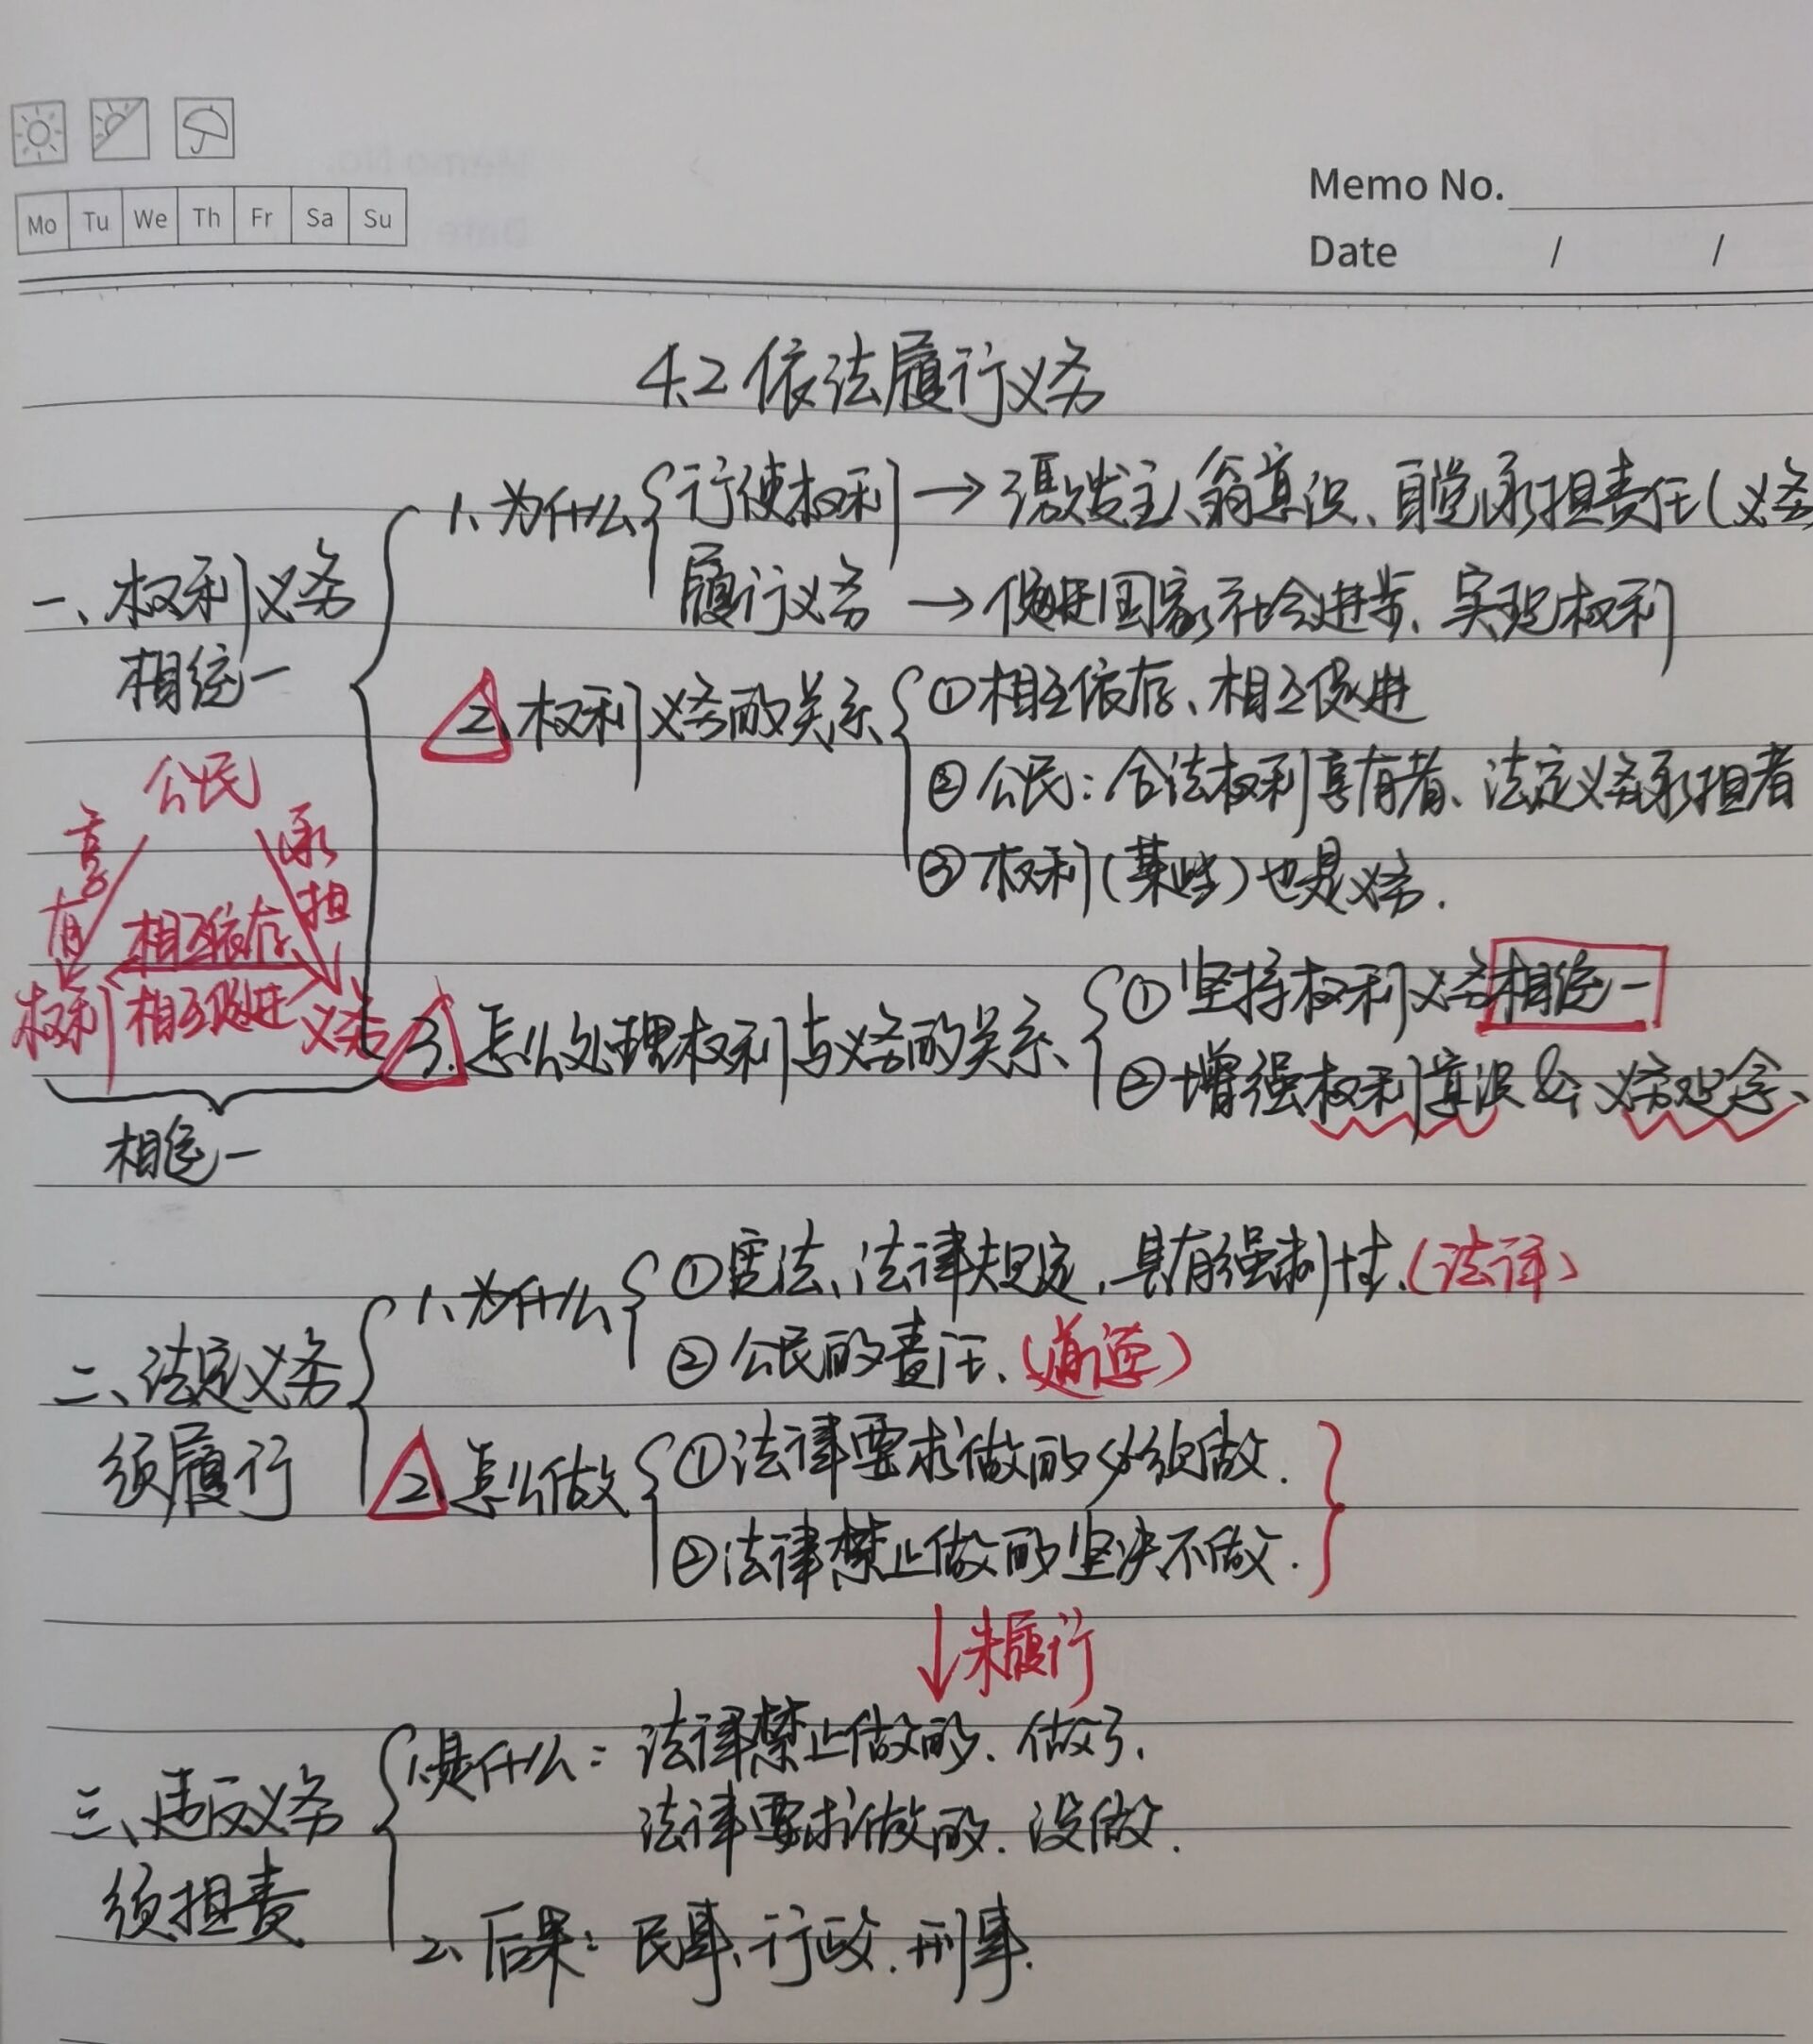 Mo Tu We Th Fr Sa Su
Memo No.
Date / /
4.2 依法履行义务
一、权利义务
相统一
1、为什么
行使权利 → 激发主人翁意识、自觉承担责任(义务
履行义务 → 促进国家社会进步、实现权利
2、权利义务的关系
①相互依存、相互促进
②公民：合法权利享有者、法定义务承担者
③权利(某些)也是义务.
公民
享有
承担
相互依存
权利 相互促进 义务
相统一
3.怎么处理权利与义务的关系
①坚持权利义务相统一
②增强权利意识& 义务观念、
二、法定义务
须履行
1、为什么
①宪法、法律规定,具有强制性.(法律)
②公民的责任、(道德)
2、怎么做
①法律要求做的必须做.
②法律禁止做的坚决不做.
↓未履行
三、违反义务
须担责
1.是什么：法律禁止做的、做了.
法律要求做的.没做.
2、后果：民事、行政.刑事.